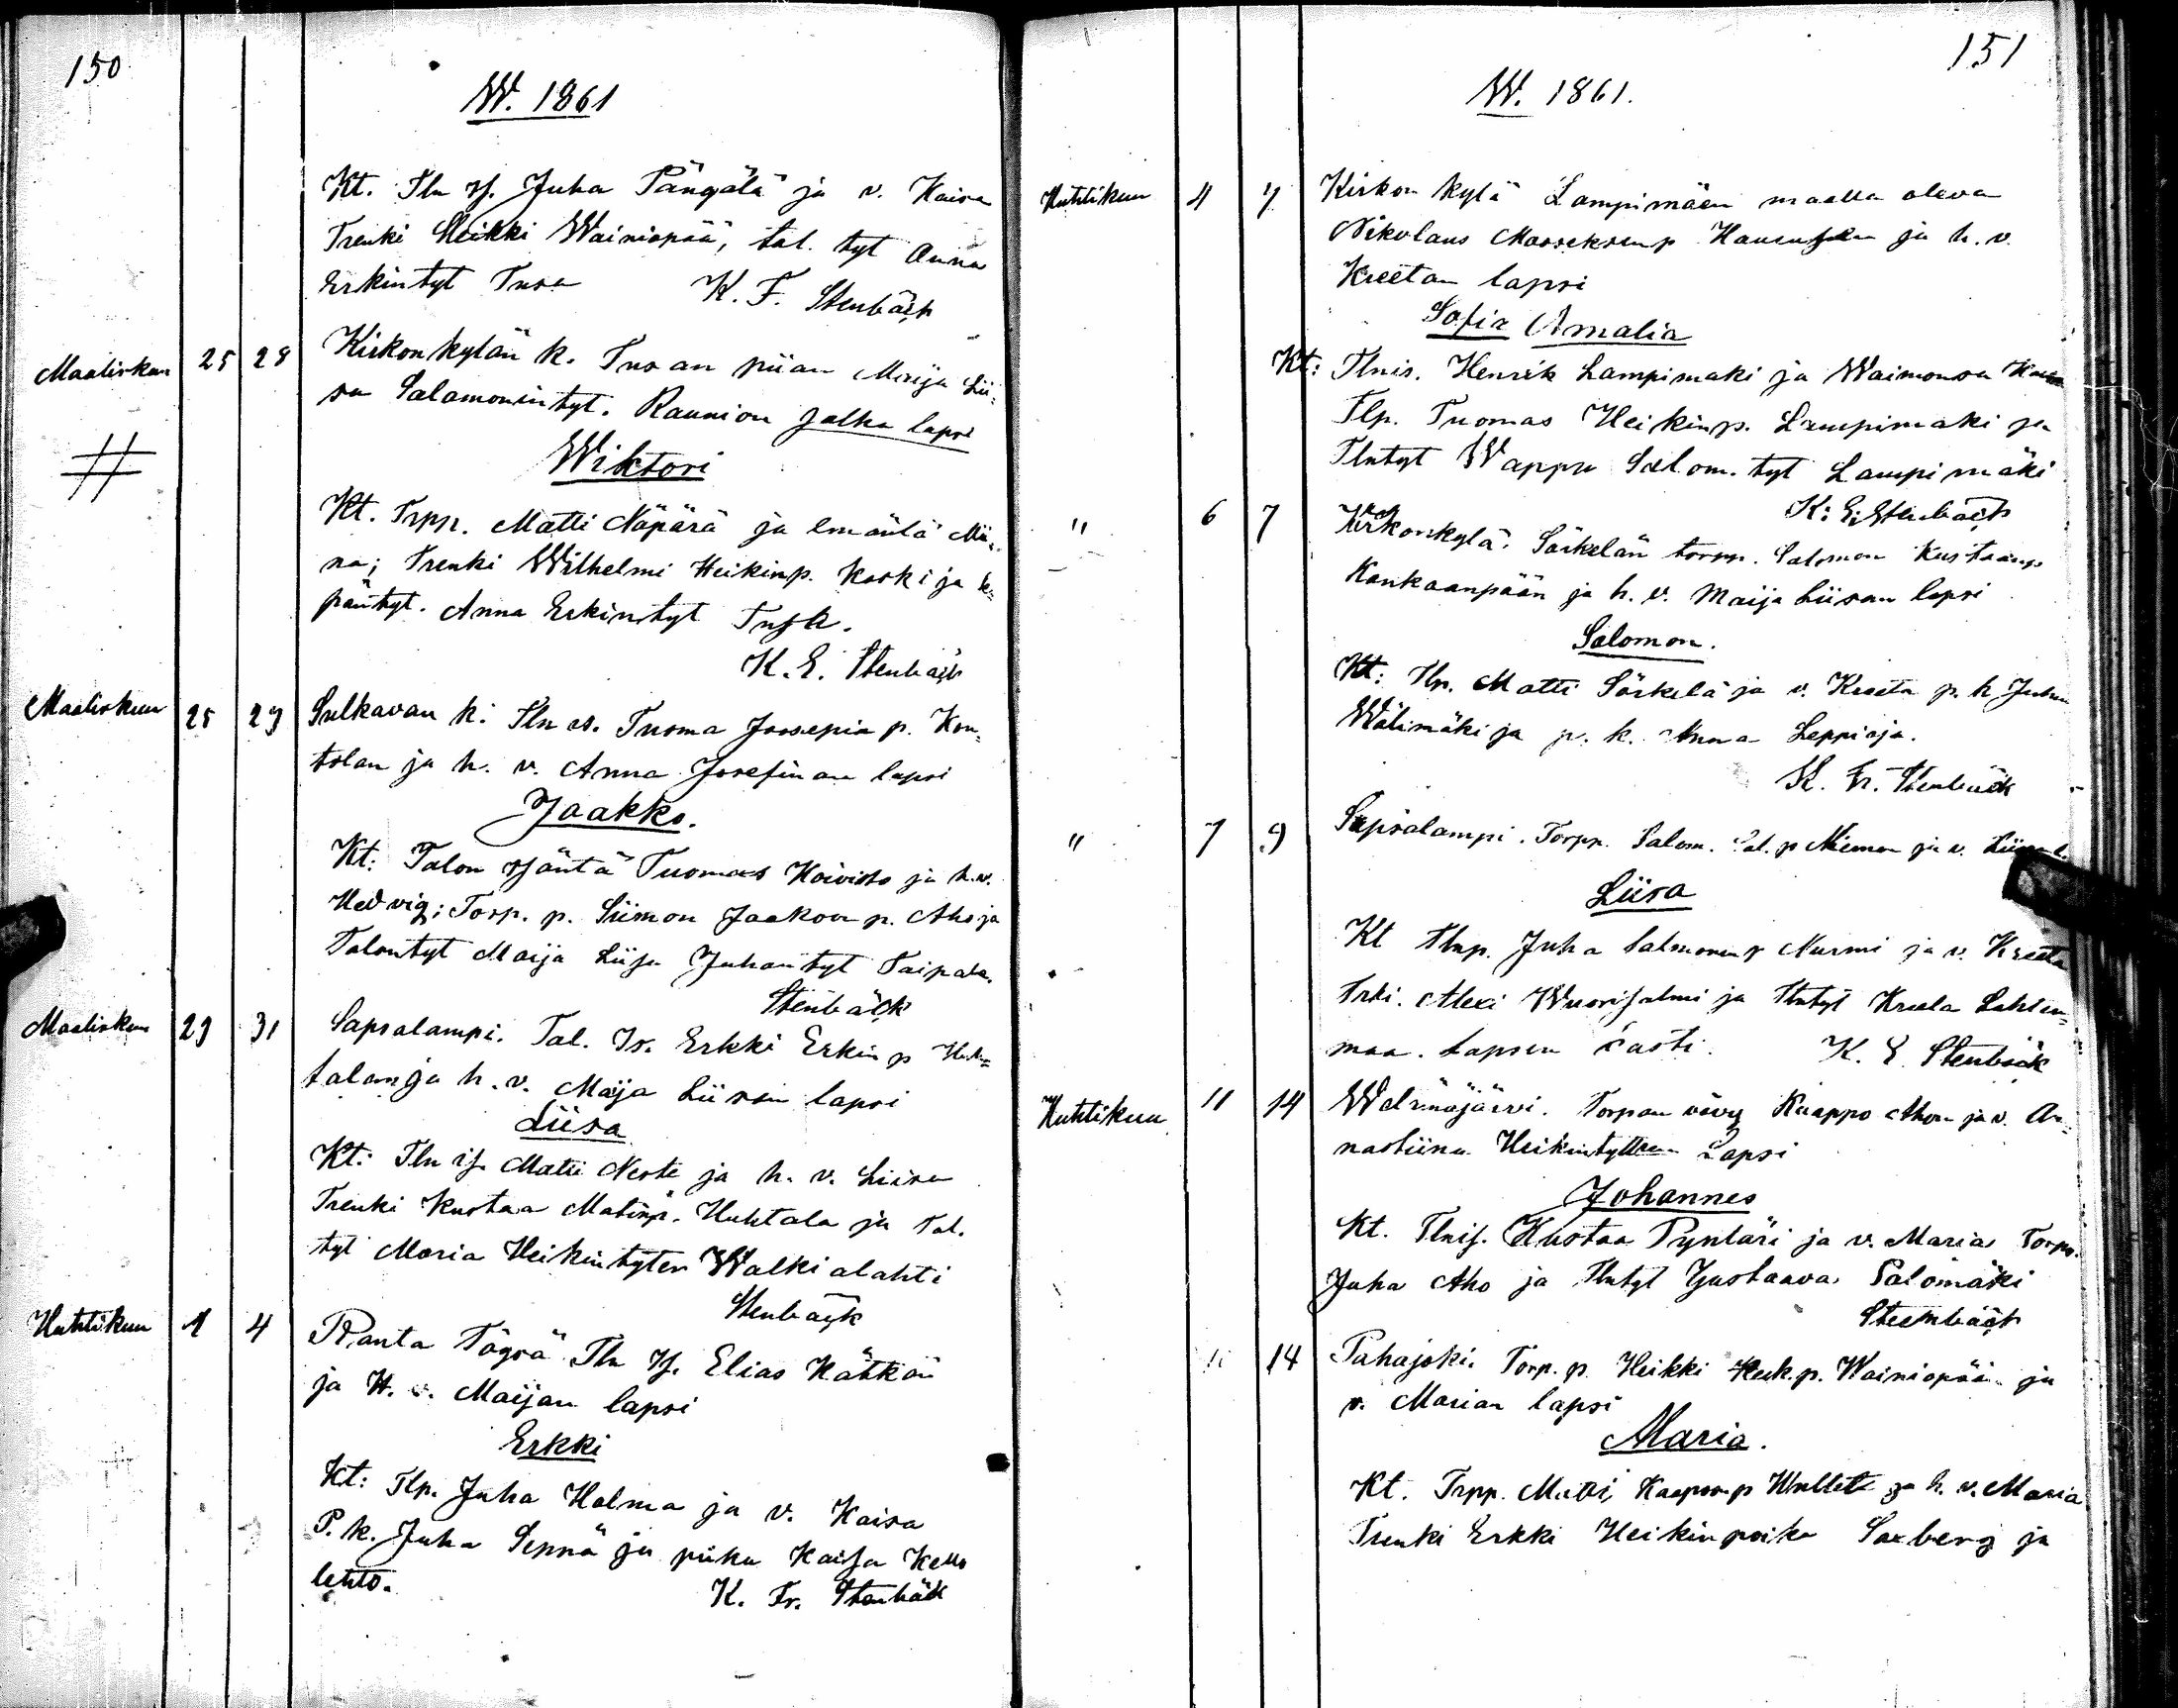 150
W. 1861
Kt. Tln Is. Juha Pängälä ja v. Kaisa
Trenki Heikki Wainiopää, tal. tyt Anna
Erkintyt Tusa K. F. Stenbäck
Maaliskuu 25 28 Kirkonkylän k. Tusan piian Maija Lii-
sa Salamonintyt. Raunion jalka lapsi
Wiktori
Kt. Trpp. Matti Näpärä ja emäntä Mii-
na; Trenki Wilhelmi Heikinp. Koski ja
päntyt. Anna Erkintyt Tusa.
K. E. Stenbäck
Maaliskuu 25 29 Sulkavan k: Tln is. Tuoma Joosepin p. Kon-
tolan ja h. v. Anna Josefinan lapsi
Jaakko.
Kt: Talon Isäntä Tuomas Koivisto ja h.v.
Hedvig; Torp. p. Siimon Jaakon p. Aho ja
Talontyt Maija Liisa Juhantyt Taipale.
Stenbäck
Maaliskuu 29 31 Sapsalampi. Tal. Is. Erkki Erkin p Huh-
talan ja h. v. Maija Liisan lapsi
Liisa
Kt: Tln is. Matti Neste ja h. v. Liisa
Trenki Kustaa Matinp. Huhtala ja Tal.
tyt Maria Heikintyter Walkialahti
Stenbäck
Huhtikuu 1 4 Ranta Töysä Tln Is. Elias Kätkän
ja H. v. Maijan lapsi
Erkki
Kt: Tlp. Juha Halma ja v. Kaisa
P. k. Juha Seppä ja piika Kaisa Kello
lehto. K. Fr. Stenbäck
151
W. 1861.
Huhtikuu 4 7 Kirkon kylä Lampimäen maalla oleva
Nikolaus Mooseksenp ja h. v.
Kreetan lapsi
Sofia Amalia
Kt: Tlnis. Henrik Lampimaki ja Waimonsa
Tlp. Tuomas Heikinp. Lampimaki ja
Tlntyt Wappu Salom. tyt Lampimäki
K: E: Stenbäck
" 6 7 Kirkonkylä. Särkelän torpp. Salomon Kustaanp
Kankaanpään ja h. v. Maija Liisan lapsi
Salomon.
Kt: Tlp. Matti Särkelä ja v. Kreeta p. k Juhan
Wälimäki ja p. k. Anna Leppioja.
K. Fr. Stenbäck
" 7 9 Sapsalampi. Torpp. Salom. Sal. p Niemen ja v. Liisan l.
Liisa
Kt Tlnp. Juha Salmonin p Nurmi ja v. Kreeta
Trki. Alexi Wuorisalmi ja Tlntyt Kreeta Lahden-
maa. Lapsen kasti. K. E Stenbäck
Huhtikuu 11 14 Weräsjärvi. Torpan vävy Kaappo Ahon ja v. An-
nastiina Heikintyttären Lapsi
Johannes
Kt. Tlnis. Kustaa Pyntäri ja v. Maria Torpp.
Juha Aho ja Tlntyt Justaava Palomäki
Steenbäck
11 14 Pahajoki. Torp. p. Heikki Heik. p. Wainiopää ja
v. Marian lapsi
Maria.
Kt. Trpp. Matti Kaapoonp ja h. v. Maria
Trenki Erkki Heikinpoika Saxberg ja